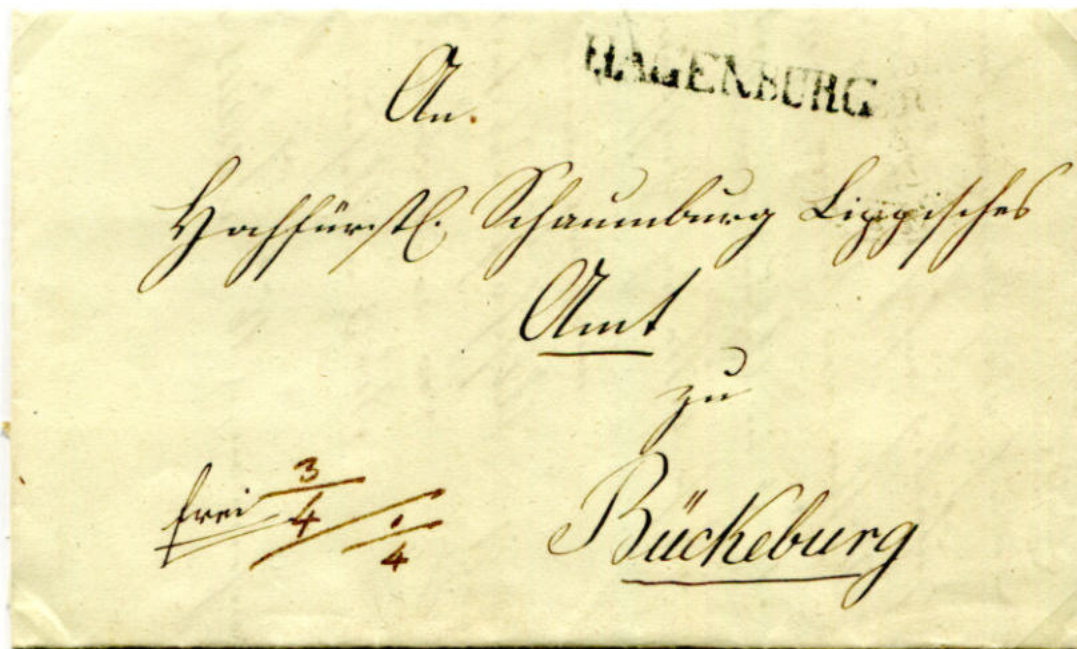 HAGENBURG
An.
Hochfürstl. Schaumburg Lippisches
Amt
zu
Bückeburg
frei 3/4 /4